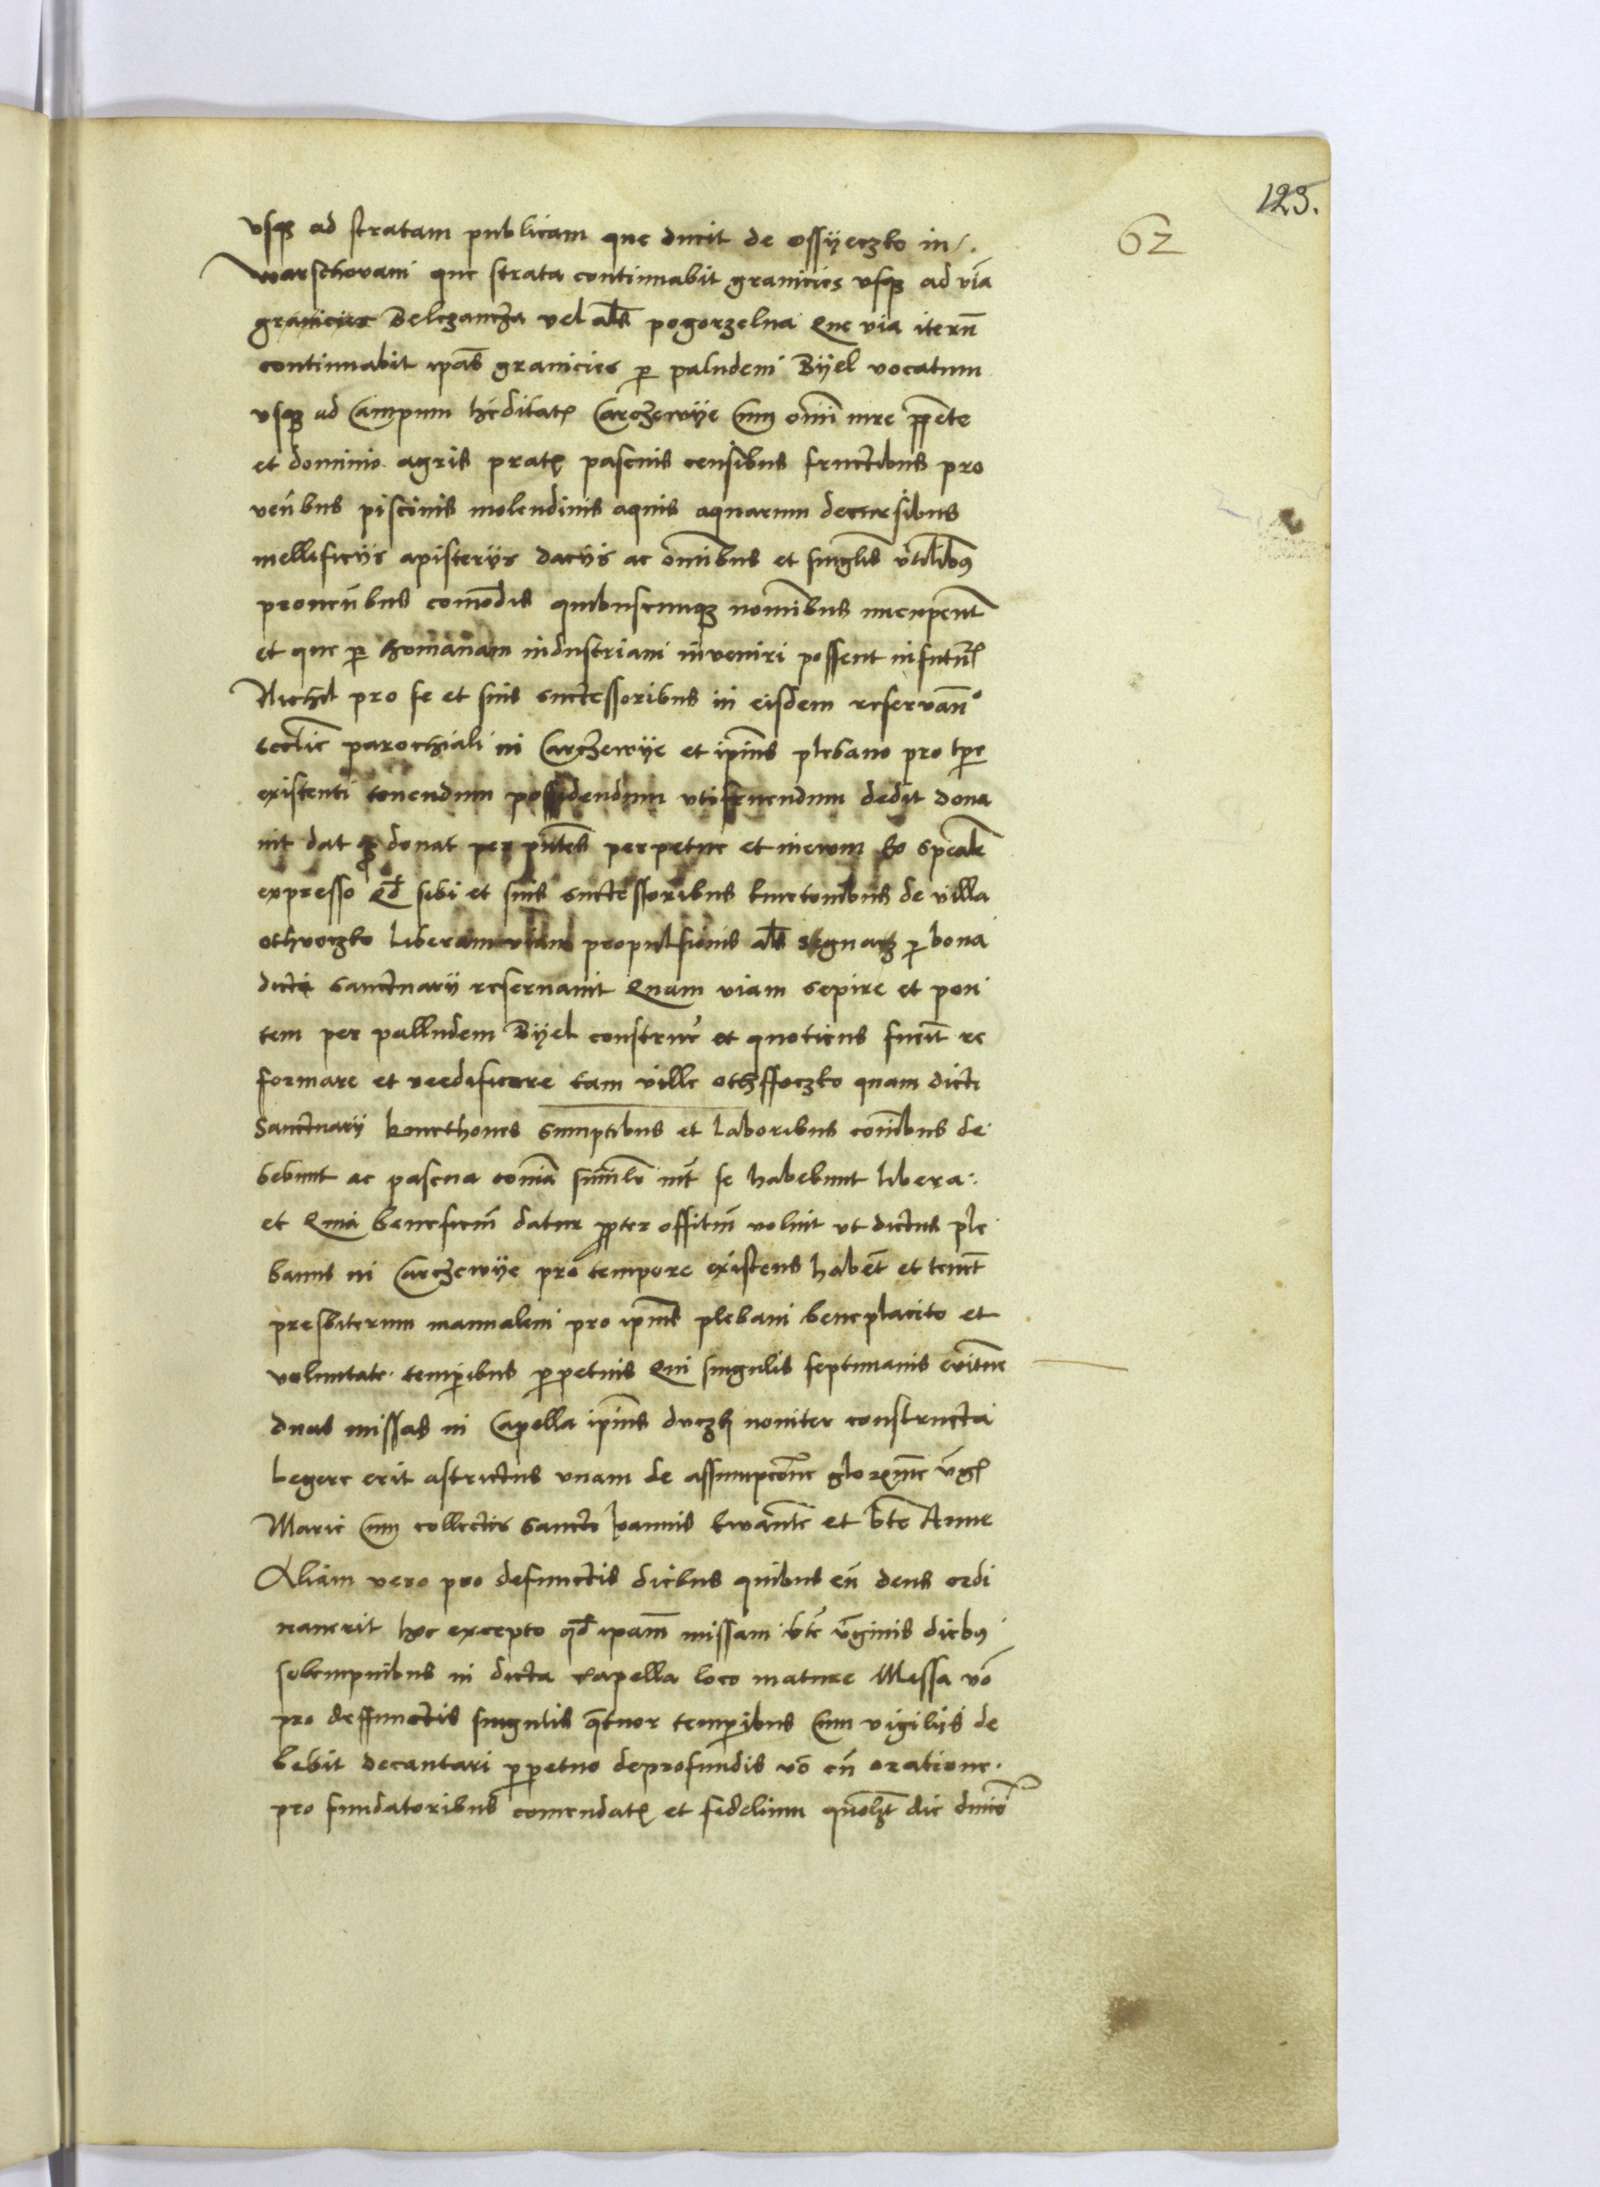 123.
62
vsqz ad stratam publicam que ducit de Ossyeczko in
warschovam que strata continuabit granicies vsqz ad viā
granicies Belczancza vel al̄s pogorzelna Que via iterū
continuabit ip̄as granicies p paludem Byel vocatum
vsqz ad Campum hēditat Carczewye Cum om̄i iure pp̄ete
et dominio agris prat pascuis censibus fructibus pro
ven̄bus piscinis molendinis aquis aquarum decursibus
mellificijs apisterijs dacijs ac om̄ibus et singl̄is vtil̄ib9
proven̄bus com̄odis quibuscumqz nom̄ibus nuncupent̄
et que p humanam industriam inveniri possent in futur̄
Nichil pro se et suis successoribus in eisdem reservan̄o
eccl̄ie parochiali in Carczewye et ip̄ius plebano pro tp̄e
existenti tenendum possidendum vtifruendum dedit dona
uit dat qz donat per pn̄tes perpetue et in evum eo speal̄e
expresso qd̄ sibi et suis successoribus kmetonibus de villa
othvoczko liberam viam propulsionis al̄s p bona
dicti sanctuarij reservauit Quam viam sepire et pon
tem per palludem Byel construe᷑ et quotiens fuerit re
formare et reedificare tam ville othffoczko quam dicti
Sanctuarij kmethones sumptibus et laboribus com̄ibus de
bebunt ac pascua com̄ia simil̄r int̄ se habebunt libera.
et Quia beneficiū datur pp̄ter offitiū voluit vt dictus ple
banus in Carczewye pro tempore existens haberēt et tenēt
presbiterum manualem pro ip̄ius plebani beneplacito et
voluntate temp̄ibus ppetuis Qui singulis septimanis
duas missas in Capella ip̄ius noviter constructa
legere erit astrictus vnam de assumpcōne glor᷑me v̄gi᷑
Marie Cum collectis sancte Ioannis Ewan̄te et bt̄e Anne
Aliam vero pro defunctis diebus quibus eū deus ordi
nauerit hoc excepto qd̄ ip̄am missam bt̄e v̄ginis dieb9
solempnibus in dicta capella loco mature Missa vō
pro deffunctis singulis q̄tuor temp̄ibus Cum vigilijs de
bebit decantari ppetuo deprofundis vō cū oratione
pro fundatoribus comendat et fidelium quol̄zt die dn̄ico